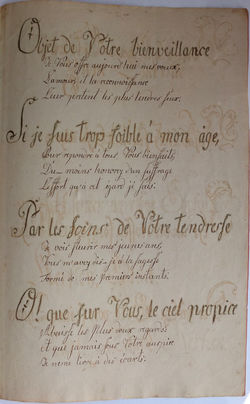 Objet de Votre bienveillance
Je Vous offre aujourd'hui mes vœux,
L'amour, et la reconnoissance
Leur prêtent les plus tendres feux.
Si je suis trop foible à mon âge,
Pour repondre à tous Vos bienfaits,
Du moins honorez d'un suffrage
L'effort qu'à cet égard je fais.
Par les soins de Votre tendresse
Je vois fleurir mes jeunes ans,
Vous m'avez à la sagesse
Formé de mes premiers instants.
O! que sur Vous, le ciel propice
les plus doux regards
Et que jamais sous Votre auspice
Je ne me livre à des écarts.